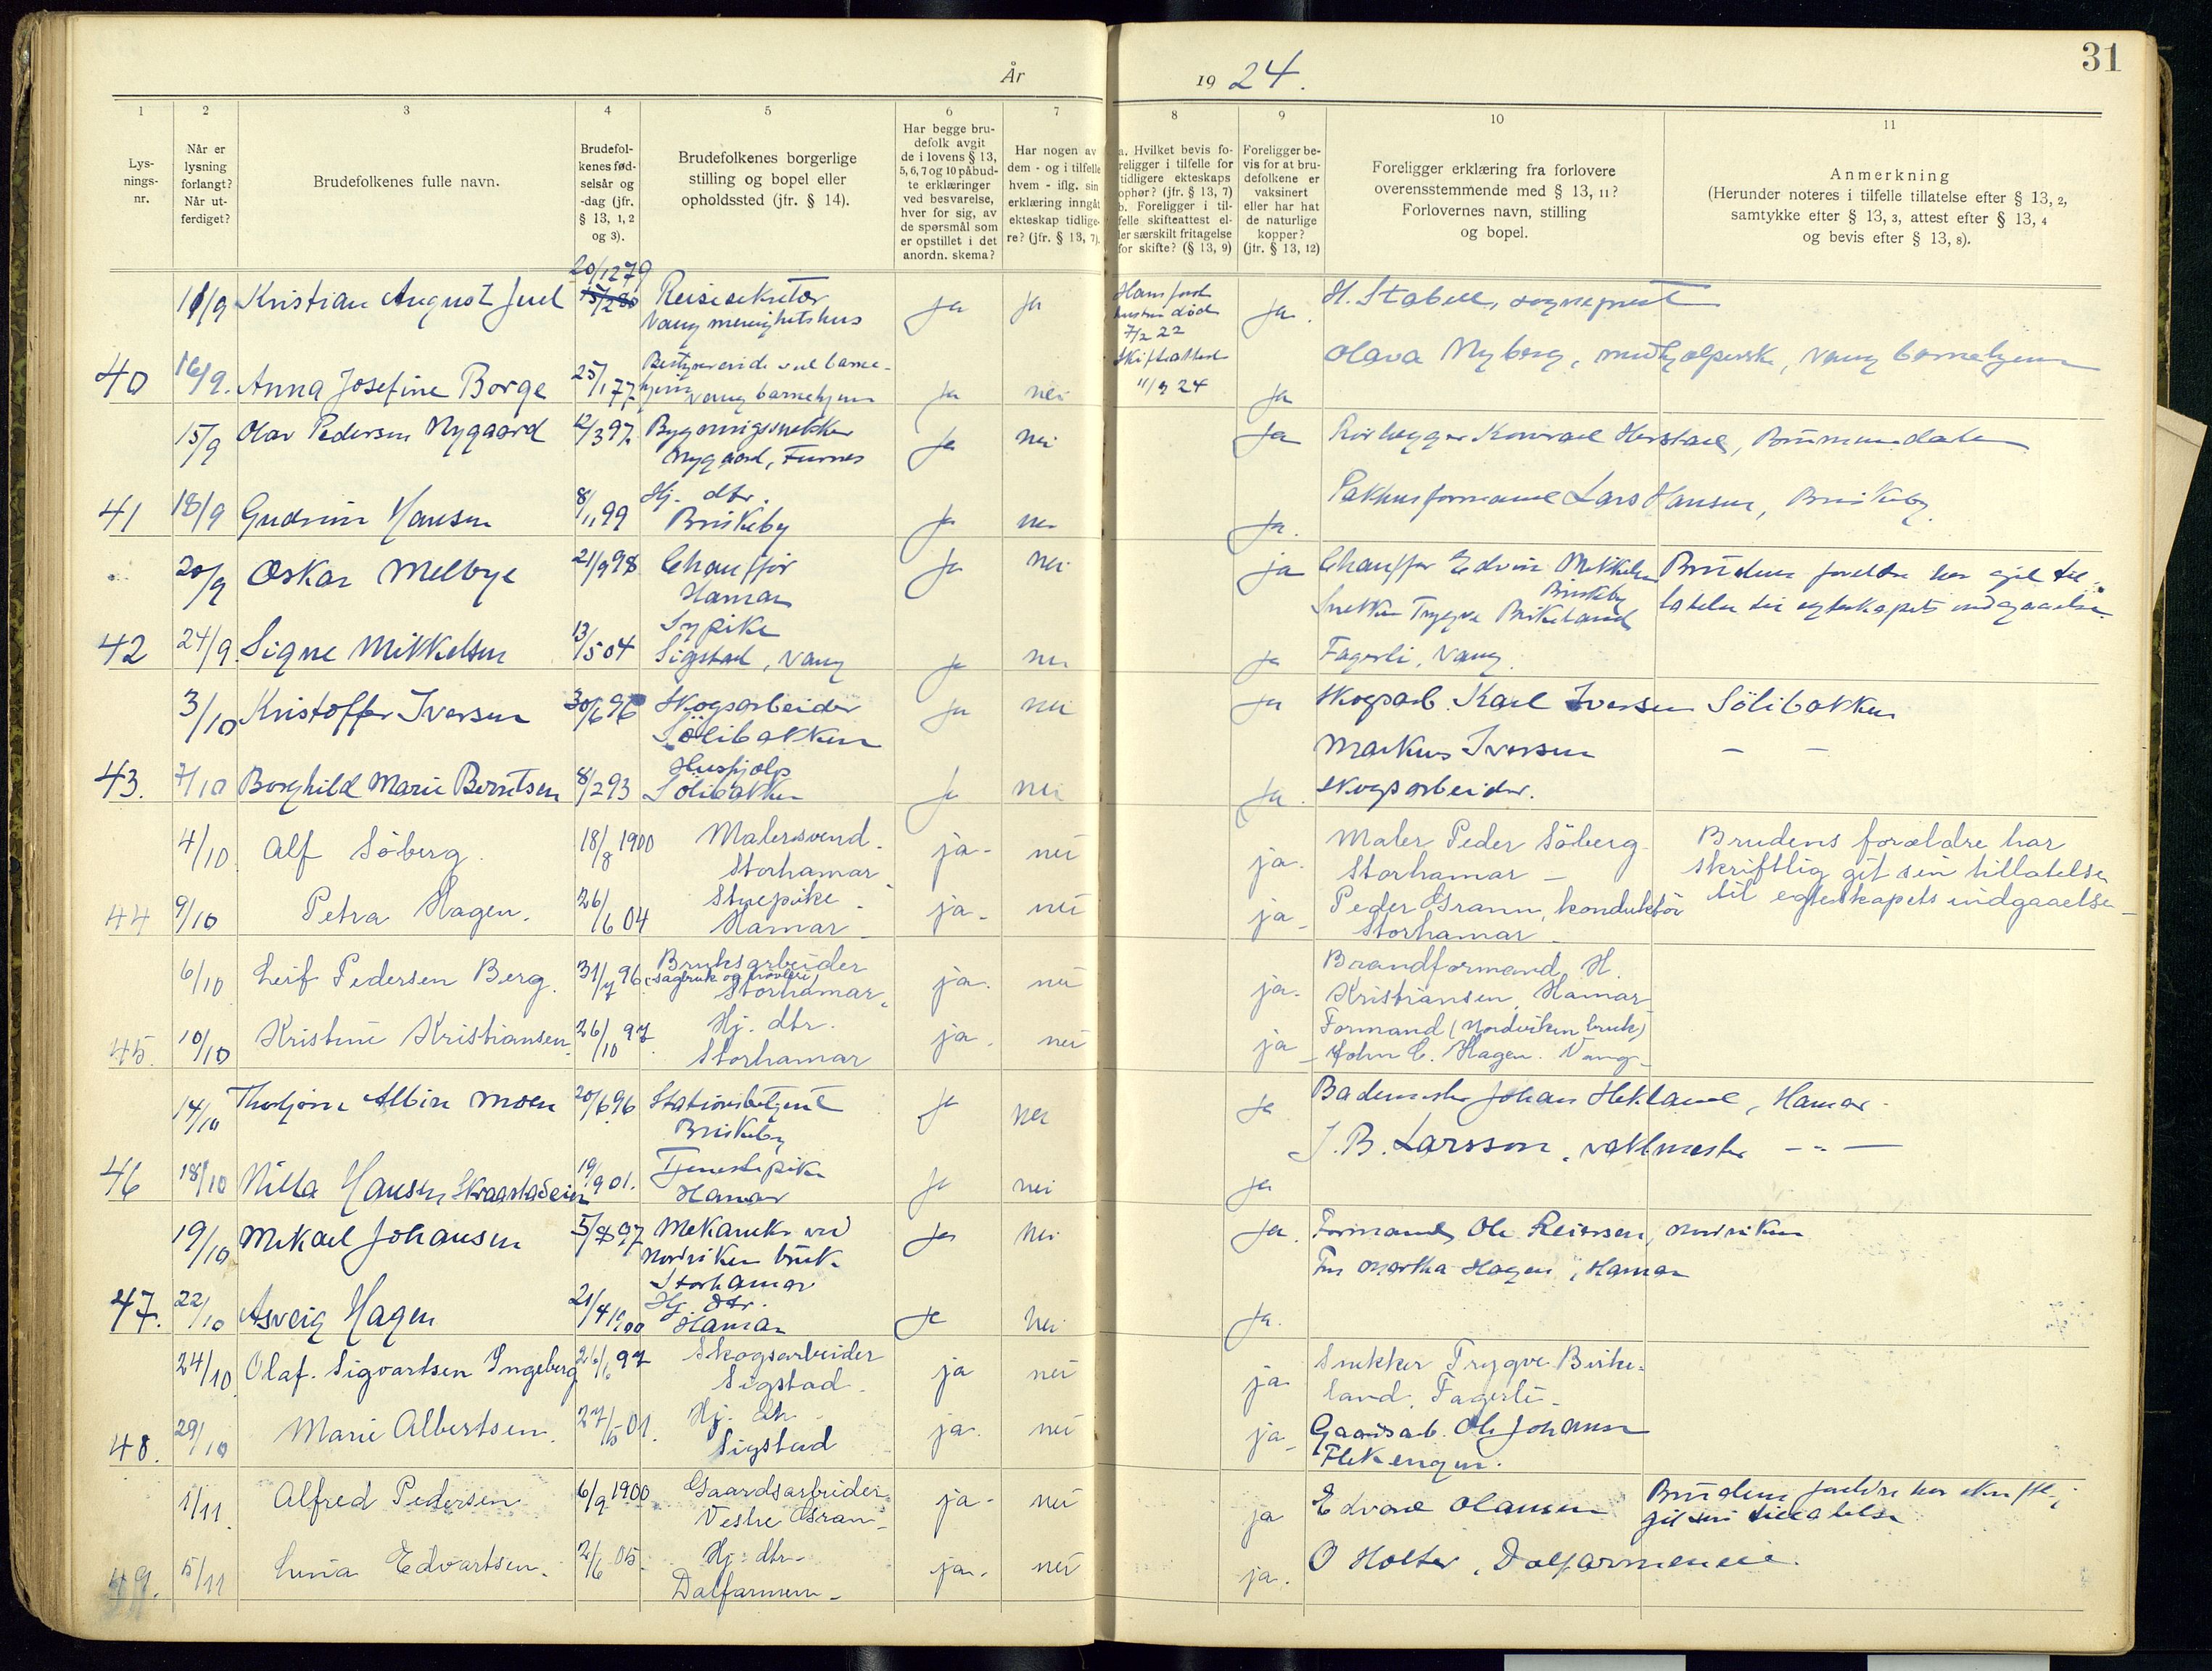 31
År 1924.
1 2 3 4 5 6 7 8 9 10 11
Lysningsnr.
Når er lysning forlangt? Når utferdiget?
Brudefolkenes fulle navn.
Brudefolkenes fødselsår og -dag (jfr. § 13, 1, 2 og 3).
Brudefolkenes borgerlige stilling og bopel eller opholdssted (jfr. § 14).
Har begge brudefolk avgit de i lovens § 13, 5, 6, 7 og 10 påbudte erklæringer ved besvarelse, hver for sig, av de spørsmål som er opstillet i det anordn. skema?
Har nogen av dem - og i tilfelle hvem - iflg. sin erklæring inngåt ekteskap tidligere? (jfr. § 13, 7).
a. Hvilket bevis foreligger i tilfelle for tidligere ekteskaps ophør? (jfr. § 13, 7) b. Foreligger i tilfelle skifteattest eller særskilt fritagelse for skifte? (§ 13, 9)
Foreligger bevis for at brudefolkene er vaksinert eller har hat de naturlige kopper? (jfr. § 13, 12)
Foreligger erklæring fra forlovere overensstemmende med § 13, 11? Forlovernes navn, stilling og bopel.
Anmerkning (Herunder noteres i tilfelle tillatelse efter § 13, 2, samtykke efter § 13, 3, attest efter § 13, 4 og bevis efter § 13, 8).
20/12 79
11/9 Kristian August Juel Reisesekretær ja ja ja. H. Stabell, sogneprest
Vang menighetshus
død
7/2 22
Skifteattest
11/9 24
40 16/9. Anna Josefine Borge 25/1 77 Bestyrerinde ved barnehjem Vang barnehjem ja nei ja Olava Nyborg, medhjælperske, Vang barnehjem
15/9 Olav Pedersen Nygaard 12/3 97 Bygningssnekker ja nei ja Rørlegger Konrad Herstad, Brummundalen
Nygaard, Furnes
41 18/9 Gudrun Hansen 8/11 99 Hj. dtr. Briskeby ja nei ja. Pakhusformand Lars Hansen, Briskeby
20/9 Oskar Melbye 21/9 98 Chauffør Hamar ja nei ja Chauffør Edvin Mikkelsen Briskeby
Brudens foreldre har git tillatelse til egteskapets indgaaelse.
42 24/9. Signe Mikkelsen 13/5 04 Sypike Sigstad, Vang ja nei ja Snekker Trygve Birkeland Fagerli, Vang.
3/10 Kristoffer Iversen 30/6 96 Skogsarbeider Sölibakken ja nei ja Skogsarb. Karl Iversen Sölibakken
43. 7/10 Borghild Marie Berntsen 8/2 93 Hushjælp Sölibakken ja nei ja. Markus Iversen – –
skogsarbeider.
4/10 Alf Söberg. 18/8 1900 Malersvend. Storhamar ja- nei ja. Maler Peder Söberg Storhamar –
Brudens forældre har skriftlig git sin tillatelse til egteskapets indgaaelse –
44 9/10 Petra Hagen. 26/6 04 Stuepike. Hamar – ja- nei ja- Peder Grann, konduktör Storhamar –
6/10 Leif Pedersen Berg. 31/7 96 Bruksarbeider (sagbruk og høvleri) Storhamar ja. nei ja- Brandformand H. Kristiansen, Hamar
45. 10/10 Kristine Kristiansen. 26/10 97. Hj. dtr. Storhamar ja. nei ja – Formand (Nordviken bruk) John C. Hagen. Vang –
14/10 Thorbjørn Albin Moen 20/6 96 Stationsbetjent Briskeby ja nei ja Bademester Johan Hekland, Hamar.
46 18/10 Nilla Hansen Skraastadeien 19/9 01. Tjenestepike Hamar ja nei ja J. B. Larsson, vaktmester – " –
19/10 Mikael Johansen 5/8 97 Mekaniker ved Nordviken bruk Storhamar ja nei ja. Formand Ole Reiersen, Nordviken
47. 22/10 Asveig Hagen 21/4 1900 Hj. dtr. Hamar ja nei ja. Fru Martha Hagen, Hamar
24/10 Olaf. Sigvartsen Ingeberg 26/6 97 Skogsarbeider Sigstad. ja nei ja Snekker Trygve Birkeland, Fagerli –
48. 29/10 Marie Albertsen. 27/5 01. Hj. dtr. Sigstad ja. nei ja – Gaardsarb. Ole Johansen Flekengen.
1/11. Alfred Pedersen 6/9 1900 Gaardsarbeider Vestre Gran – ja- nei ja Edvard Olausen
Brudens foreldre har skriftlig git sin tillatelse
49. 5/11 Lina Edvartsen. 2/6 05 Hj. dtr. Dalfarmen – ja. nei ja. O Holter, Dalfarmeneie.